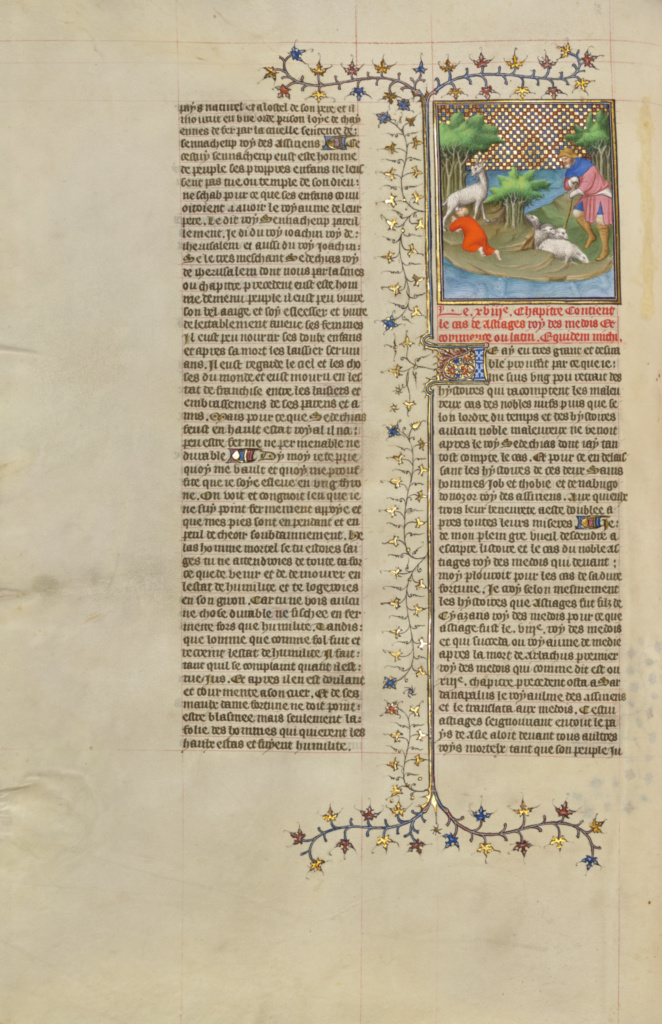 pays naturel et a lostel de son pere, et il
mourut en une orde prison loye de chay
ennes de fer par la quelle sentence de:
sennacherip roy des assiriens
cestuy sennacherip eust este homme
de peuple ses propres enfans ne leus
sent pas tue ou temple de son dieu:
neschab pour ce que ses enfans couu
oitoient a auoir le royaume de leur
pere. Le dit roy Sennacherip pareil
lement. Je di du roy ioachin roy de:
iherusalem et aussi du roy ioachin:
Se le tres meschant Sedechias roy
de iherusalem dont nous parlasmes
ou chapitre precedent eust este hom
me de menu peuple il eust peu viure
son bel aaige et soy esleesser et viure
delectablement auecc ses femmes
Il eust peu nourir ses doulx enfans
et apres sa mort les laissier seruiu
ans. Il eust regarde le ciel et les cho
ses du monde et eust mouru en les
tat de franchise entre les baisiers et
embrassemens de ses parens et a
mis. Mais pour ce que Sedechias
feust en hault estat royal il na:
peu estre ferme ne permenable ne
durable Dy moy ie te prie
quoy me vault et quoy me prouf
fite que ie soye esleue en ung thro
ne. On voit et congnoit leu que ie
ne suy point fermement appoye et
que mes pies sont en pendant et en
peril de cheoir soubdainnement. He
las homme mortel se tu estoies sai
ges tu ne attendroies de toute ta for
ce que de venir et de demourer en
lestat de humilite et te logeroies
en son giron. Car tu ne vois aulcu
ne chose durable ne fichee en fer
mete fors que humilite. Tandis:
que lomme que comme fol fuit et
recerne lestat de humilite il fait:
tant quil se complaint quant il est:
rue ius. Et apres il en est doulant
et tourmente a son cuer. Et de ses
maulx dame fortune ne doit point:
estre blasmee, mais seulement la:
folie des hommes qui quierent les
haulx estas et fuyent humilite.
Le. xviiie. Chapitre Contient
le cas de Astiages roy des medois Et
commence ou latin. Equidem michi.
Je ay eu tres grant et desira
ble prouffit par ce que ie:
me suis ung pou retrait des
hystoires qui racomptent les maleu
reux cas des nobles iuifs puis que se
lon lordre du temps et des hystoires
aulcun noble maleureux ne venoit
apres le roy Sedechias dont iay tan
tost compte le cas. Et pour ce en delais
sant les hystoires de ces deux Sains
hommes Job et thobie et de nabugo
donozor roy des assiriens. Aux quieulx
trois leur beneurete a este doublee a
pres toutes leurs miseres Je:
de mon plein gre vueil descendre a
escripre listoire et le cas du noble as
tiages roy des medois qui deuant:
moy plouroit pour les cas de sa dure
fortune. Je croy selon mesmement
les hystoires que Astiages fut filz de
Cyazaris roy des medois pour ce que
Astiage fust le. viiie. roy des medois
et qui succeda ou royaume de medie
apres la mort de Arbachus premier
roy des medois qui comme dit est ou
chapitre precedent osta a Sar
danapalus le royaulme des assiriens
et le translata aux medois. Cestui
astiages seignourant en tout le pa
ys de Asie aloit deuant tous aultres
roys mortelx tant que son peuple iu